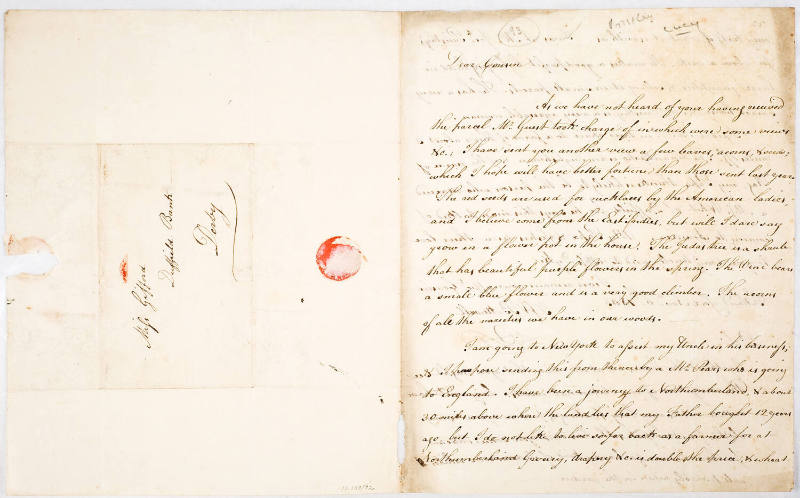 Miss Gifford
Duffield Bank
Derby
Lucy
Dear Cousin
As we have not heard of your having received
the parcel Mr Guest took charge of in which were some views
&c., I have sent you another view a few leaves, acorns, & seeds,
which I hope will have better fortune than those sent last year.
The red seeds are used for necklaces by the American ladies
and I believe come from the East Indies, but will I dare say
grow in a flower pot in the house. The Judas tree is a shrub
that has beautiful purple flowers in the spring. The Vine bears
a small blue flower and is a very good climber. The acorns
of all the varieties we have in our woods.
I am going to New York to assist my Uncle in his business,
& I purpose sending this from thence by a Mr Pears who is going
to England. I have been a journey to Northumberland, & about
30 miles above where the land lies that my Father bought 12 years
ago, but I do not like to live so far back as a farmer for at
Northumberland Grocery, drapery &c is double the price, & wheat